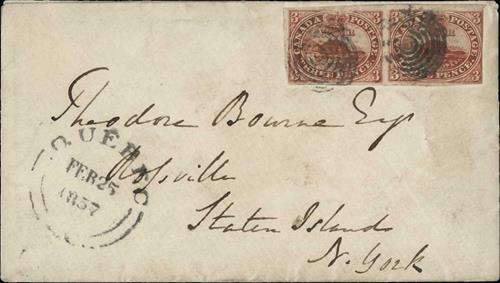 3 CANADA POSTAGE 3
3 THREE PENCE 3
3 CANADA POSTAGE 3
3 PENCE
Theodore Bourne Esq
QUEBEC
FEB 25
1857
Rossville
Staten Island
N. York